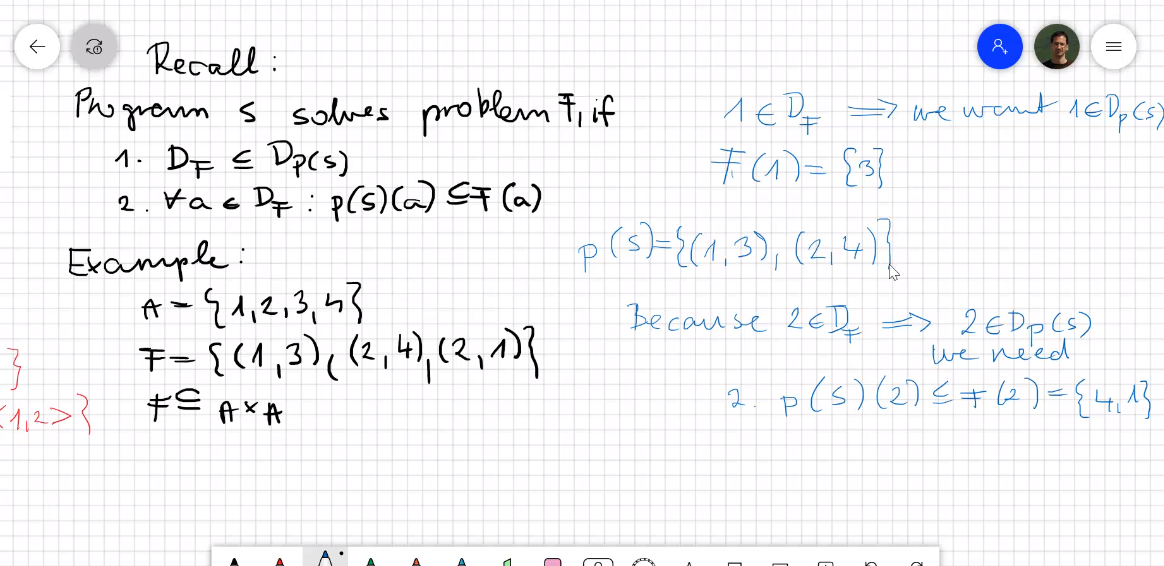 Recall:
Program S solves problem F, if
1. D_F ⊆ D_p(s)
2. ∀a ∈ D_F : p(S)(a) ⊆ F(a)
Example:
A = {1,2,3,4}
F = {(1,3), (2,4), (2,1)}
F ⊆ A × A
}
<1,2>}
1 ∈ D_F ⟹ we want 1 ∈ D_p(s)
F(1) = {3}
p(S) = {(1,3), (2,4)}
Because 2 ∈ D_F ⟹ 2 ∈ D_p(s)
we need
2. p(S)(2) ⊆ F(2) = {4,1}